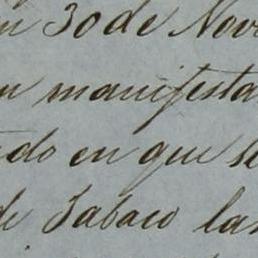 n 30 de Nov
manifesta
do en que se
de Tabaco las